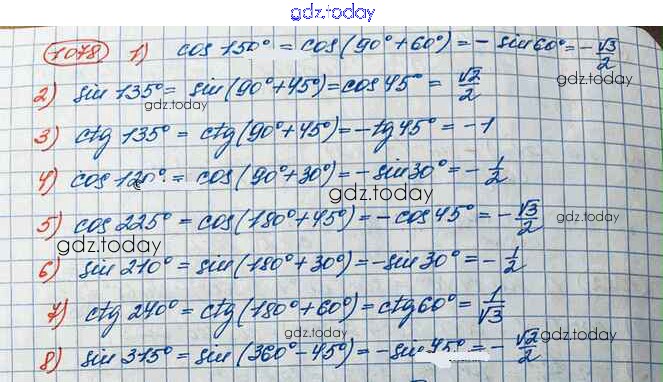 gdz.today
1078 1) cos 150° = cos(90°+60°) = -sin60° = -√3/2
2) sin 135° = sin(90°+45°) = cos 45° = √2/2
gdz.today
gdz.today
3) ctg 135° = ctg(90°+45°) = -tg45° = -1
4) cos 120° = cos(90°+30°) = -sin30° = -1/2
gdz.today
5) cos 225° = cos(180°+45°) = -cos45° = -√3/2
gdz.today
6) sin 210° = sin(180°+30°) = -sin30° = -1/2
7) ctg 240° = ctg(180°+60°) = ctg60° = 1/√3
gdz.today
gdz.today
8) sin 315° = sin(360°-45°) = -sin 45° = -√2/2